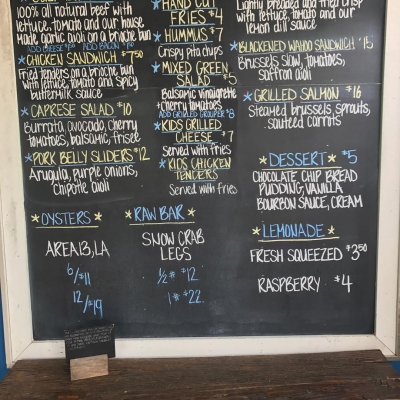 100% all natural beef with
lettuce, tomato and our house
made garlic aioli on a brioche bun
ADD CHEESE ADD BACON
CHICKEN SANDWICH $7.50
Fried tenders on a brioche bun
with lettuce, tomato and spicy
buttermilk sauce
CAPRESE SALAD $10
Burrata, avocado, cherry
tomatoes, balsamic, frisee
PORK BELLY SLIDERS $12
Arugula, purple onions,
Chipotle aioli
HAND CUT
FRIES $4
HUMMUS $7
Crispy pita chips
MIXED GREEN
SALAD $5
Balsamic vinaigrette
+ cherry tomatoes
ADD GRILLED GROUPER $8
KIDS GRILLED
CHEESE $7
Served with fries
KIDS CHICKEN
TENDERS
Served with fries
Lightly breaded and fried crisp
with lettuce, tomato and our
lemon dill sauce
BLACKENED WAHOO SANDWICH $15
Brussels slaw, tomatoes,
saffron aioli
GRILLED SALMON $16
Steamed brussels sprouts,
sauteed carrots
DESSERT $5
CHOCOLATE CHIP BREAD
PUDDING, VANILLA
BOURBON SAUCE, CREAM
OYSTERS
AREA 13, LA
6/$11
12/$19
RAW BAR
SNOW CRAB
LEGS
1/2# $12
1# $22
LEMONADE
FRESH SQUEEZED $3.50
RASPBERRY $4